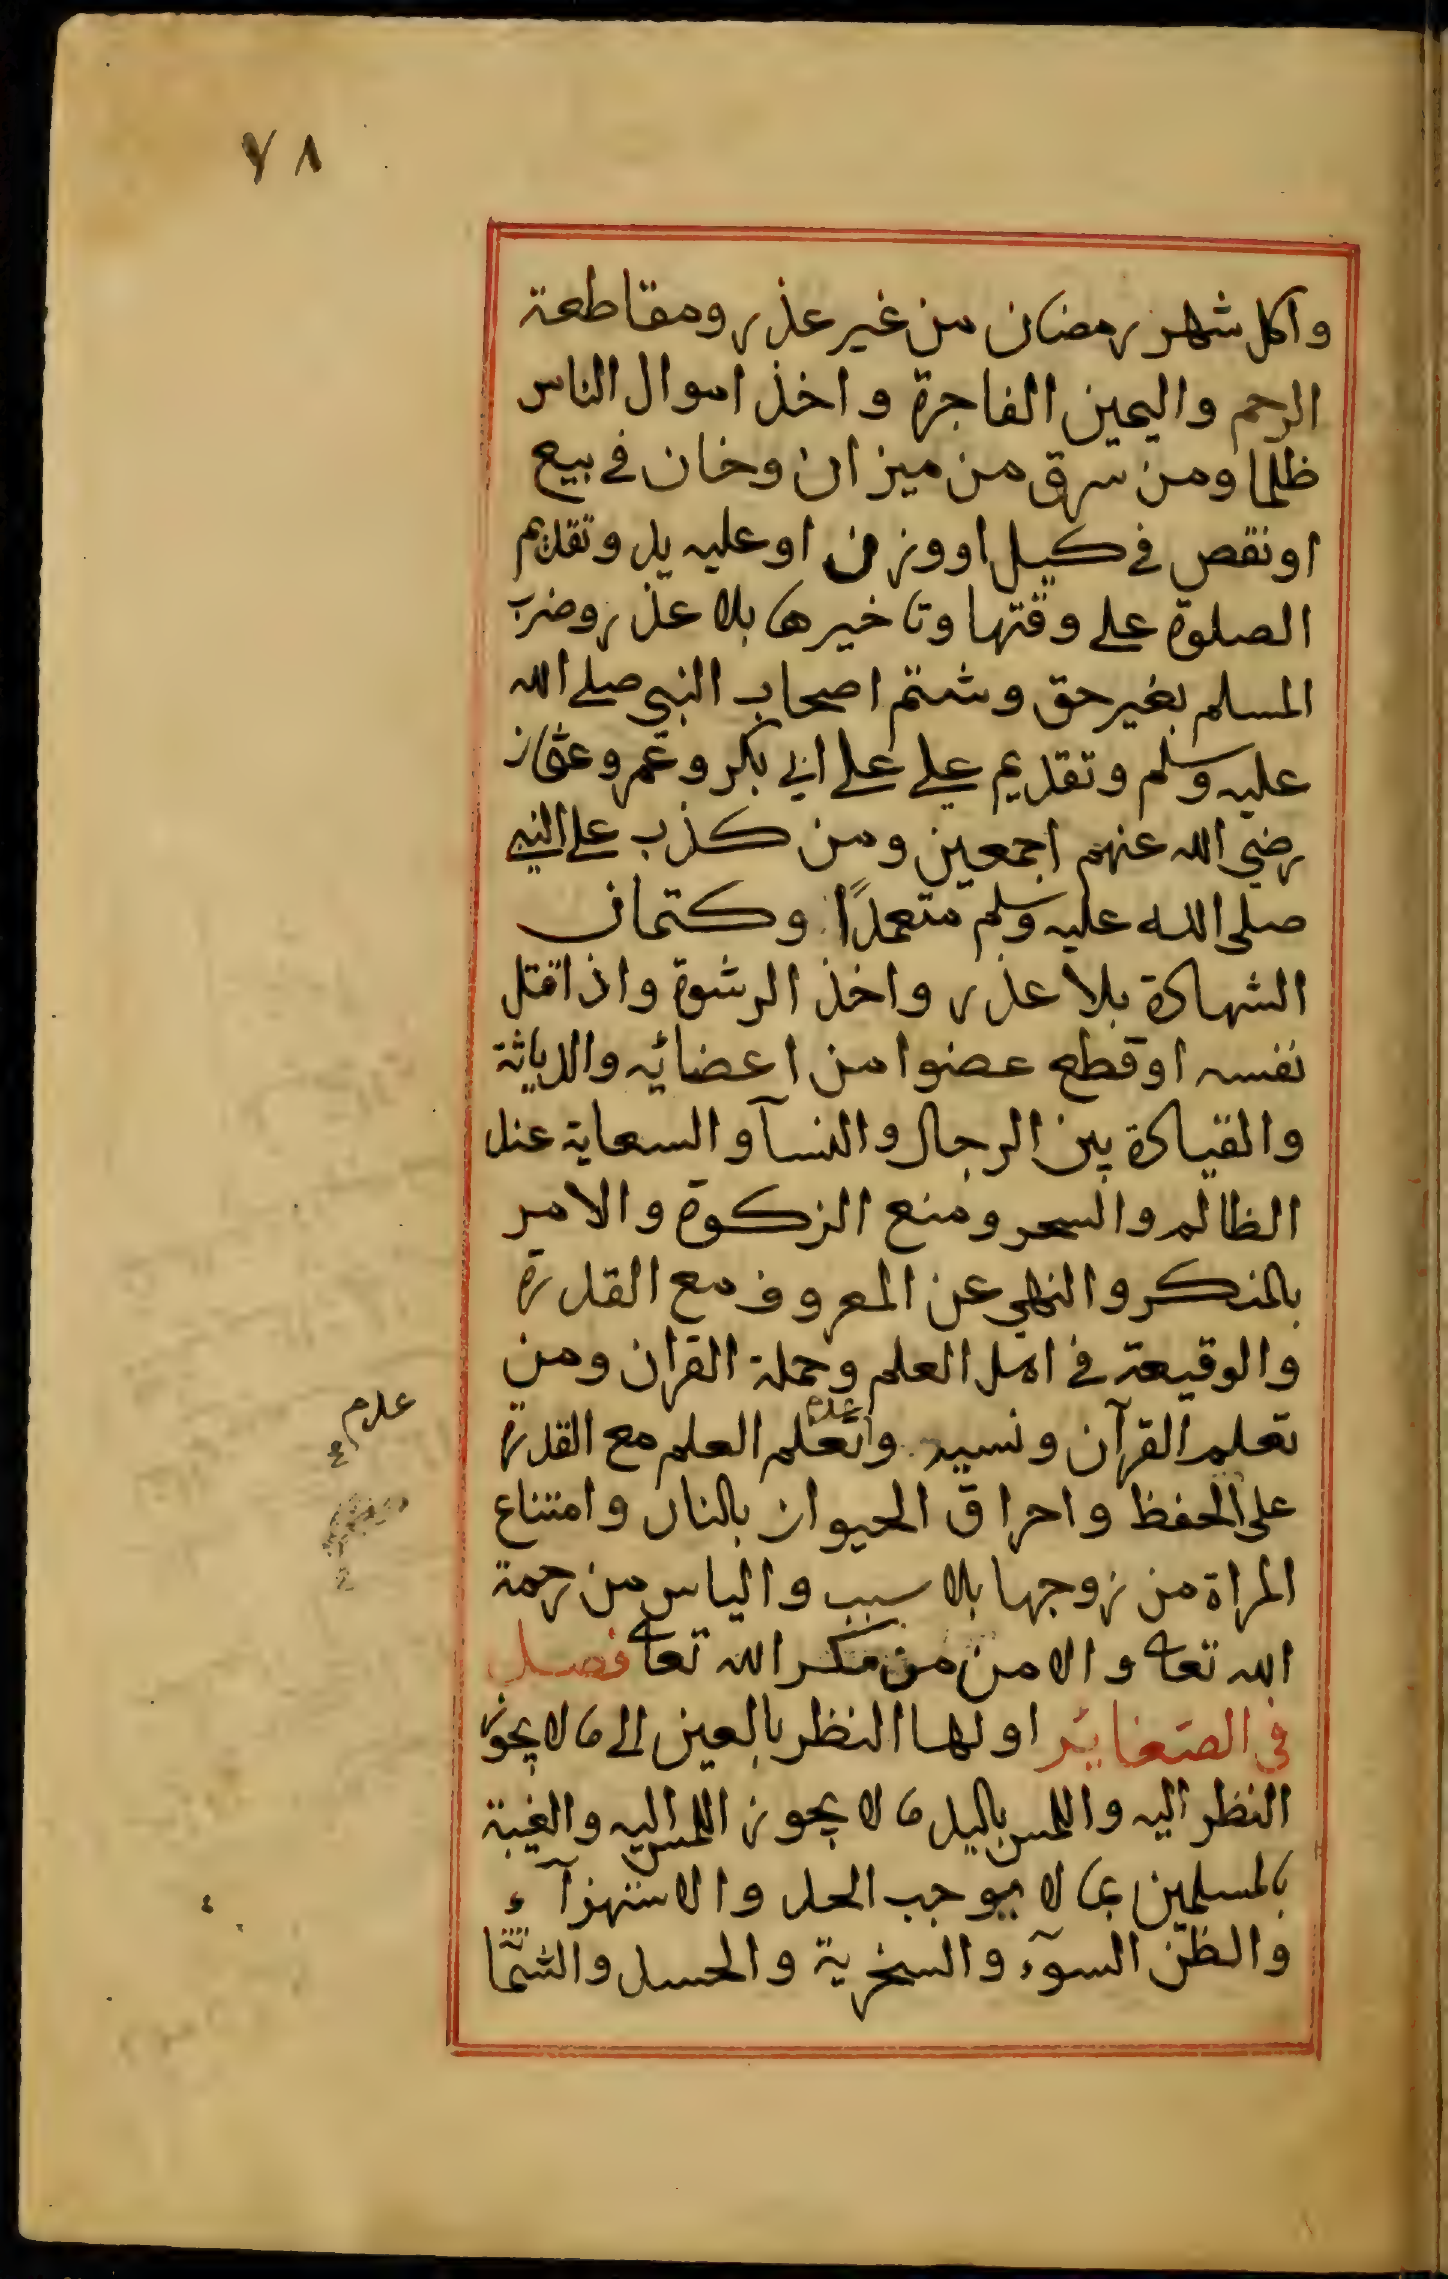 ٧٨
واكل شهر رمضان من غير عذر ومقاطعة
الرحم واليمين الفاجرة واخذ اموال الناس
ظلما ومن سرق من ميزان وخان في بيع
او نقص في كيل او وزن او عليه يد وتقديم
الصلوة على وقتها وتاخيرها بلا عذر وضرب
المسلم بغير حق وشتم اصحاب النبي صلى الله
عليه وسلم وتقديم علي على ابي بكر وعمر وعثمان
رضي الله عنهم اجمعين ومن كذب على النبي
صلى الله عليه وسلم متعمدًا وكتمان
الشهادة بلا عذر واخذ الرشوة واذا قتل
نفسه او قطع عضوا من اعضائه والدياثة
والقيادة بين الرجال والنسآ والسعاية عند
الظالم والسحر ومنع الزكوة والامر
بالمنكر والنهي عن المعروف مع القدرة
والوقيعة في اهل العلم وحملة القران ومن
تعلم القرآن ونسيه واتعلم العلم مع القدرة
علام
على الحفظ واحراق الحيوان بالنار وامتناع
المراة من زوجها بلا سبب والياس من رحمة
الله تعا والامن من مكر الله تعا فصل
في الصغاير اولها النظر بالعين الى ما لا يجوز
النظر اليه واللمس باليد ما لا يجوز اللمس اليه والغيبة
بالمسلمين بما لا يوجب الحد والاستهزآء
والظن السوٓء والسخرية والحسد والشتما